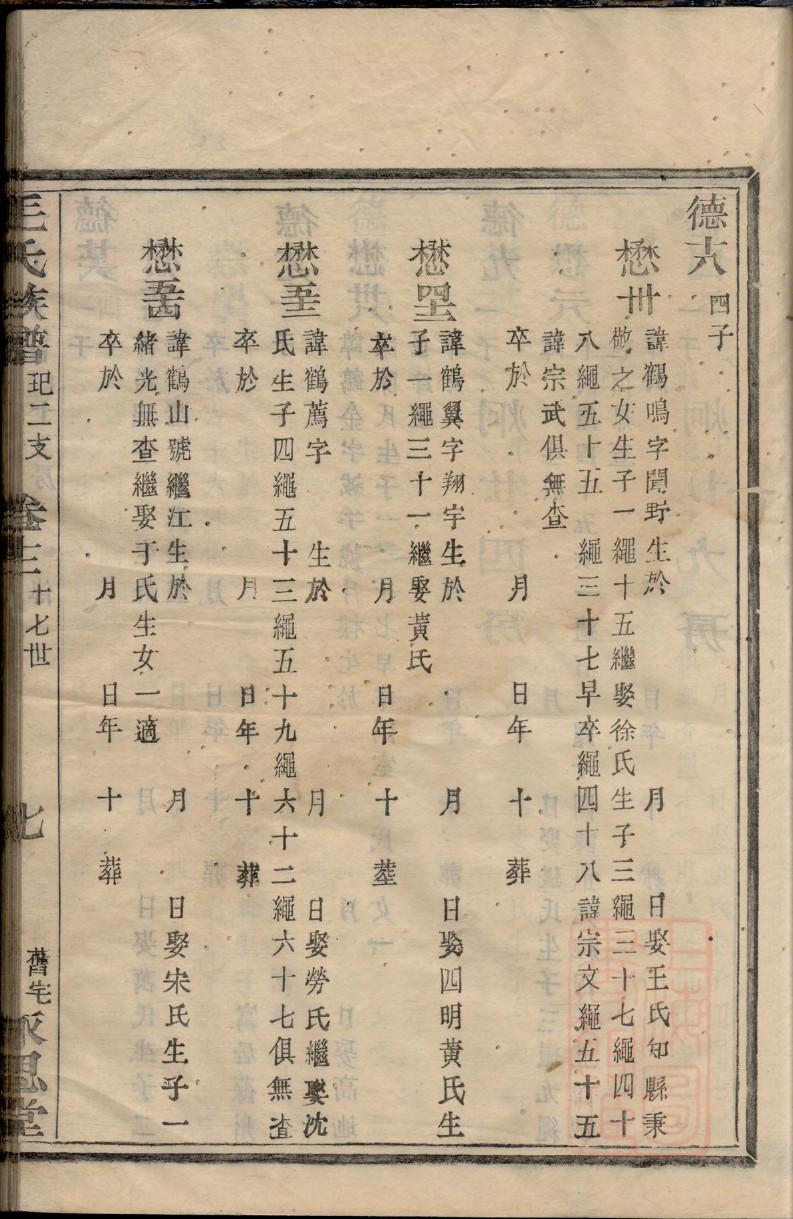 德十八四子
懋卅
諱鶴鳴字聞野生於 月 日娶王氏知縣秉
敬之女生子一繩十五繼娶徐氏生子三繩三十七繩四十
八繩五十五 繩三十七早卒繩四十八諱宗文繩五十五
諱宗武俱無查
卒於 月 日年 十 葬
懋四十五
諱鶴翼字翔宇生於 月 日娶四明黃氏生
子一繩三十一繼娶黃氏
卒於 月 日年 十 塟
懋五十三
諱鶴薦字 生於 月 日娶勞氏繼娶沈
氏生子四繩五十三繩五十九繩六十二繩六十七俱無查
卒於 月 日年 十 葬
懋五十四
諱鶴山號繼江生於 月 日娶宋氏生子一
緒光無查繼娶于氏生女一適
卒於 月 日年 十 葬
王氏族譜 玘二支 卷十三 十七世 七 舊宅永思堂